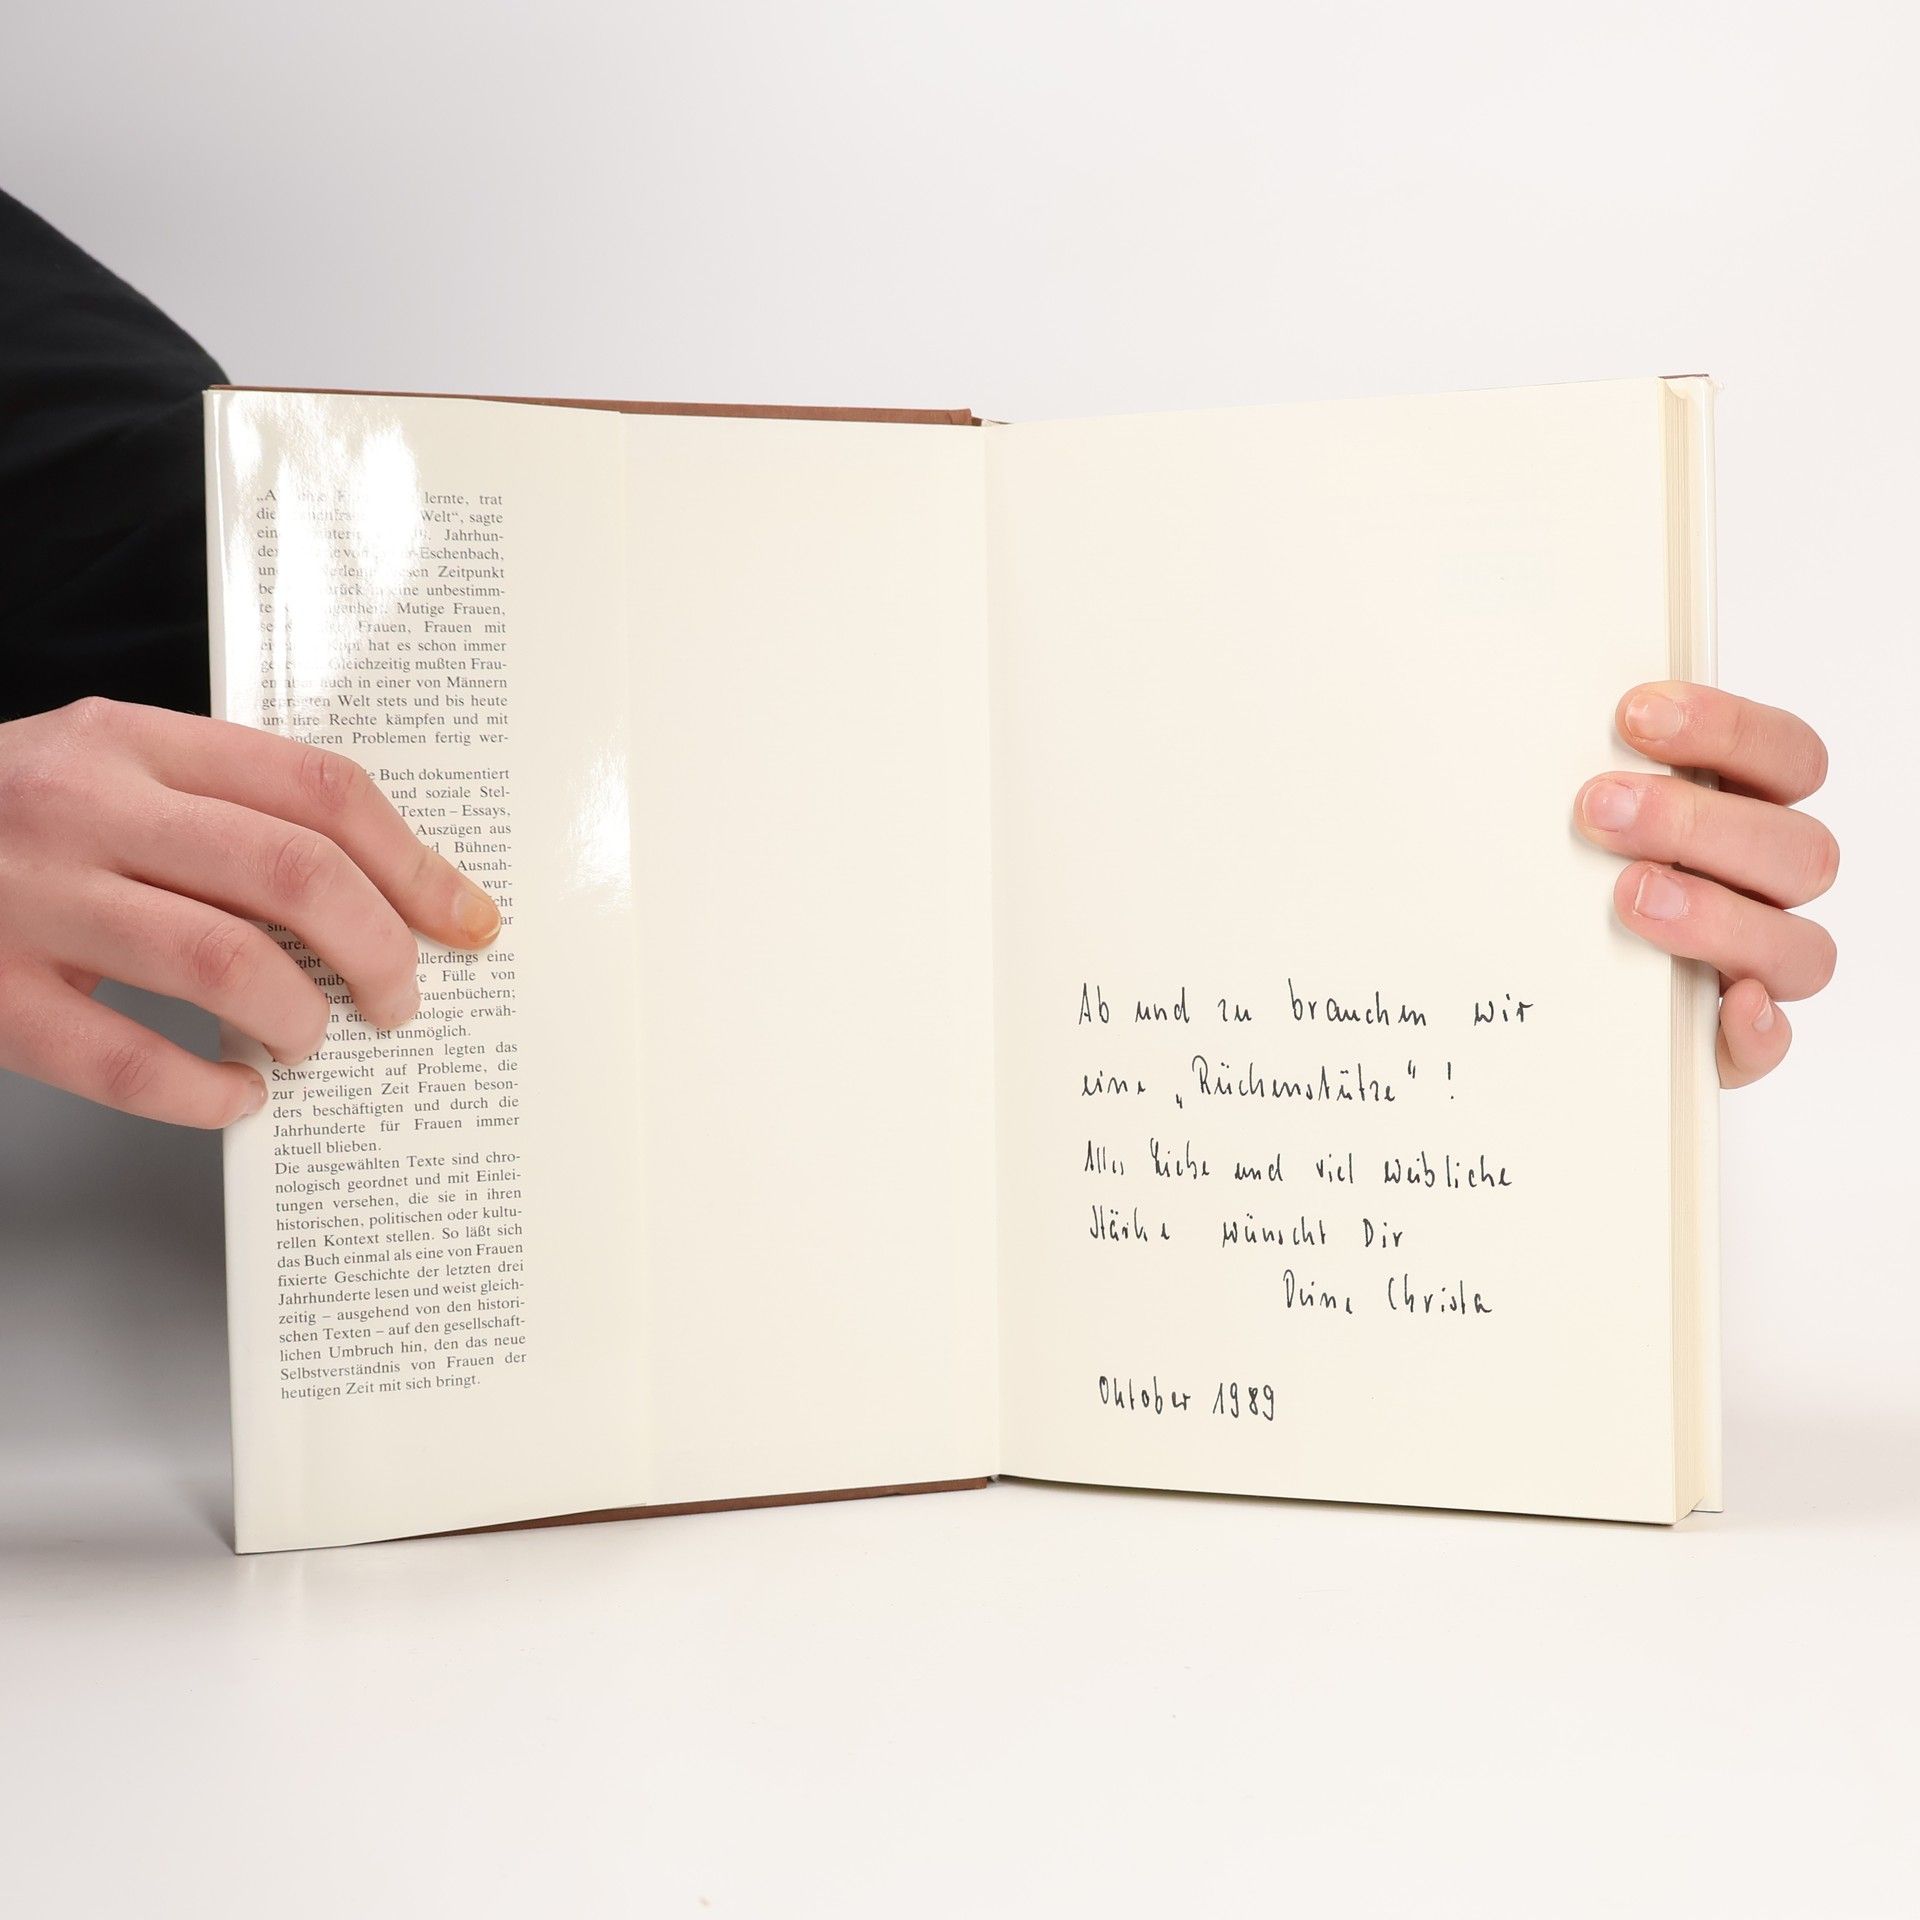 lernte, trat
die Welt“, sagte
Jahrhun-
Eschenbach,
Zeitpunkt
unbestimm-
Mutige Frauen,
Frauen, Frauen mit
hat es schon immer
Gleichzeitig mußten Frau-
en aber auch in einer von Männern
geprägten Welt stets und bis heute
um ihre Rechte kämpfen und mit
Problemen fertig wer-
Buch dokumentiert
und soziale Stel-
Texten – Essays,
Auszügen aus
Bühnen-
Ausnah-
wur-
eine
Fülle von
wollen, ist unmöglich.
Herausgeberinnen legten das
Schwergewicht auf Probleme, die
zur jeweiligen Zeit Frauen beson-
ders beschäftigten und durch die
Jahrhunderte für Frauen immer
aktuell blieben.
Die ausgewählten Texte sind chro-
nologisch geordnet und mit Einlei-
tungen versehen, die sie in ihren
historischen, politischen oder kultu-
rellen Kontext stellen. So läßt sich
das Buch einmal als eine von Frauen
fixierte Geschichte der letzten drei
Jahrhunderte lesen und weist gleich-
zeitig – ausgehend von den histori-
schen Texten – auf den gesellschaft-
lichen Umbruch hin, den das neue
Selbstverständnis von Frauen der
heutigen Zeit mit sich bringt.
Ab und zu brauchen wir
eine „Rückenstütze“ !
Alles Liebe und viel weibliche
Stärke wünscht Dir
Deine Christa
Oktober 1989